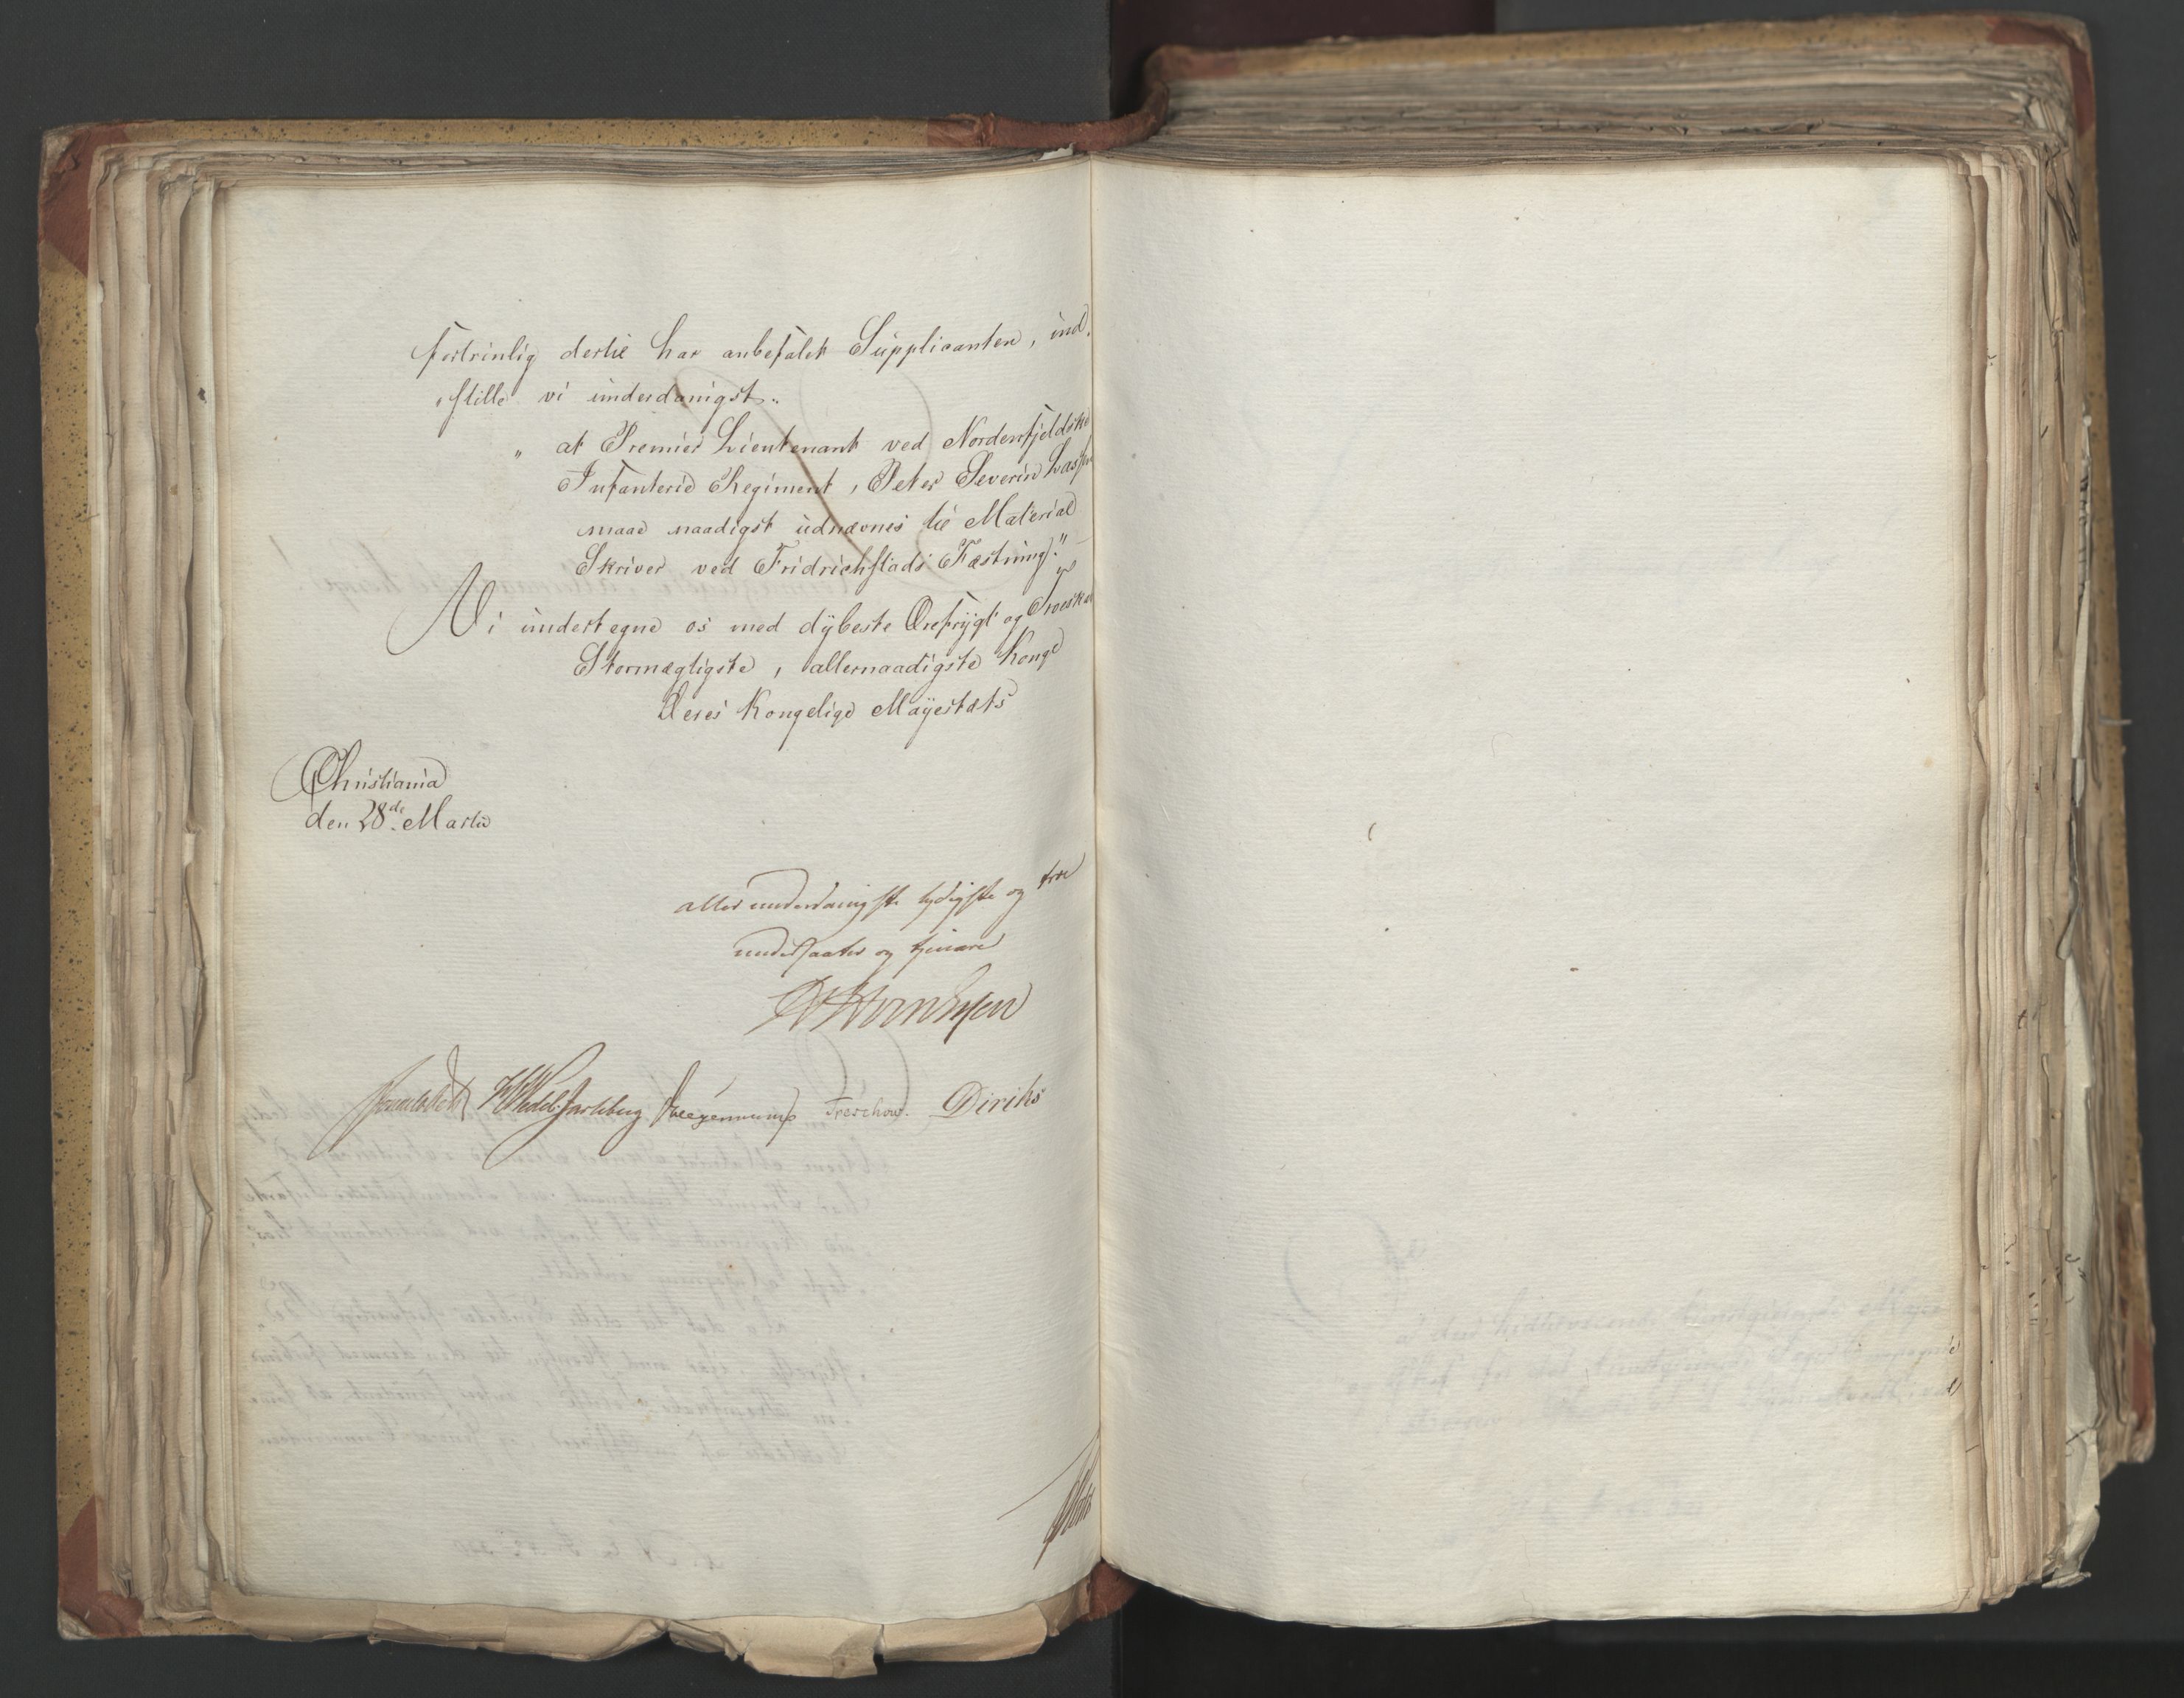 fortrinlig dertil har anbefalet Supplicanten, ind,
„stille vi underdanigst„
„ at Premier Lieutenant ved Nordenfjeldske
Infanterie Regiment, Peter Severin
maae naadigst udnævnes til Material
Skriver ved Fridrichstads Fæstning."
Vi undertegne os med dÿbeste Ærefrÿgt og Troeskab
Stormægtigste, allernaadigste Konge
Deres Kongelige Mayestæts
Christiania
den 28de Marts
allerunderdanigste lydigste og troe
undersaatter og tjenere
Sommerhielm Wedel Jarlsberg Krieg Treschow. Diriks